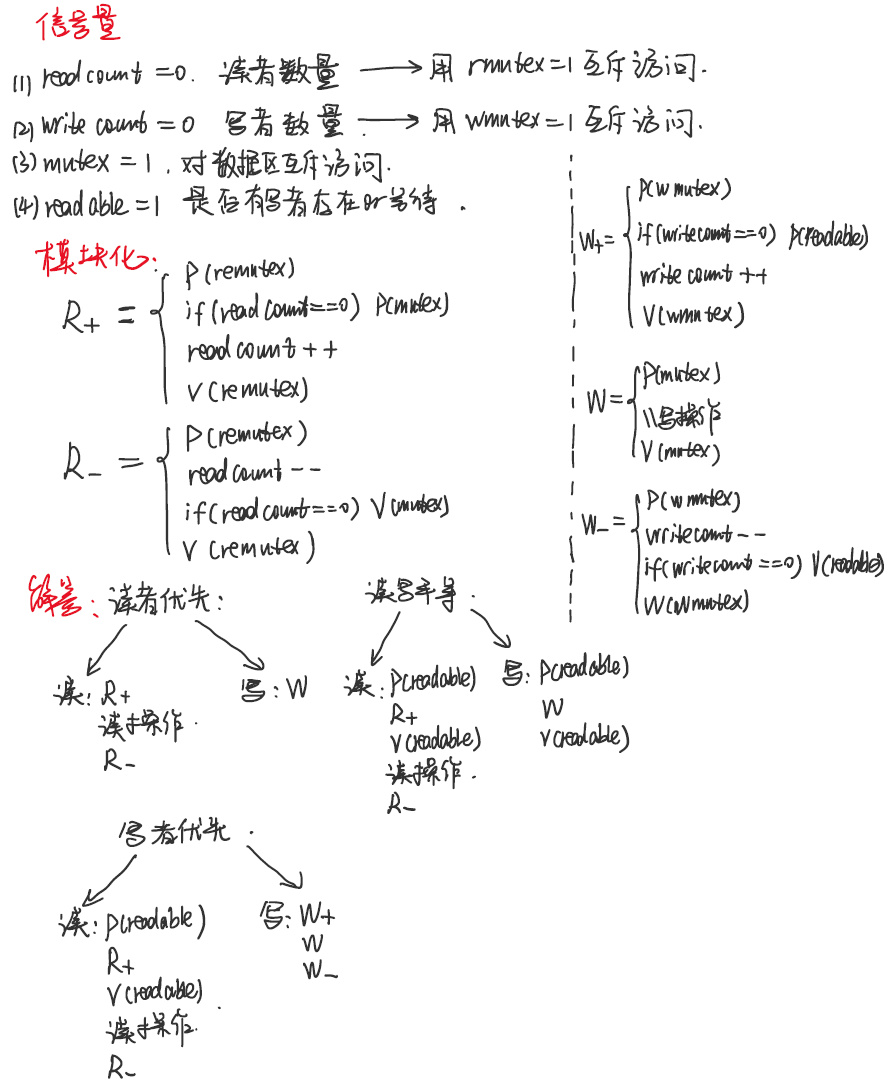 信号量
(1) readcount =0. 读者数量 → 用 rmutex=1 互斥访问.
(2) write count =0 写者数量. → 用 wmutex=1 互斥访问.
(3) mutex =1. 对数据区互斥访问.
(4) readable=1 是否有写者存在or等待.
模块化:
R+ = {
P(remutex)
if(readcount==0) P(mutex)
readcount++
V(remutex)
R- = {
P(remutex)
readcount--
if(readcount==0) V(mutex)
V(remutex)
W+= {
P(wmutex)
if(writecount==0) P(readable)
writecount++
V(wmutex)
W= {
P(mutex)
\\写操作
V(mutex)
W-= {
P(wmutex)
writecount--
if(writecount==0) V(readable)
W(wmutex)
读者优先:
读: R+
读操作.
R-
写: W
读写平等.
读: P(readable)
R+
V(readable)
读操作.
R-
写: P(readable)
W
V(readable)
写者优先.
读: P(readable)
R+
V(readable)
读操作.
R-
写: W+
W
W-